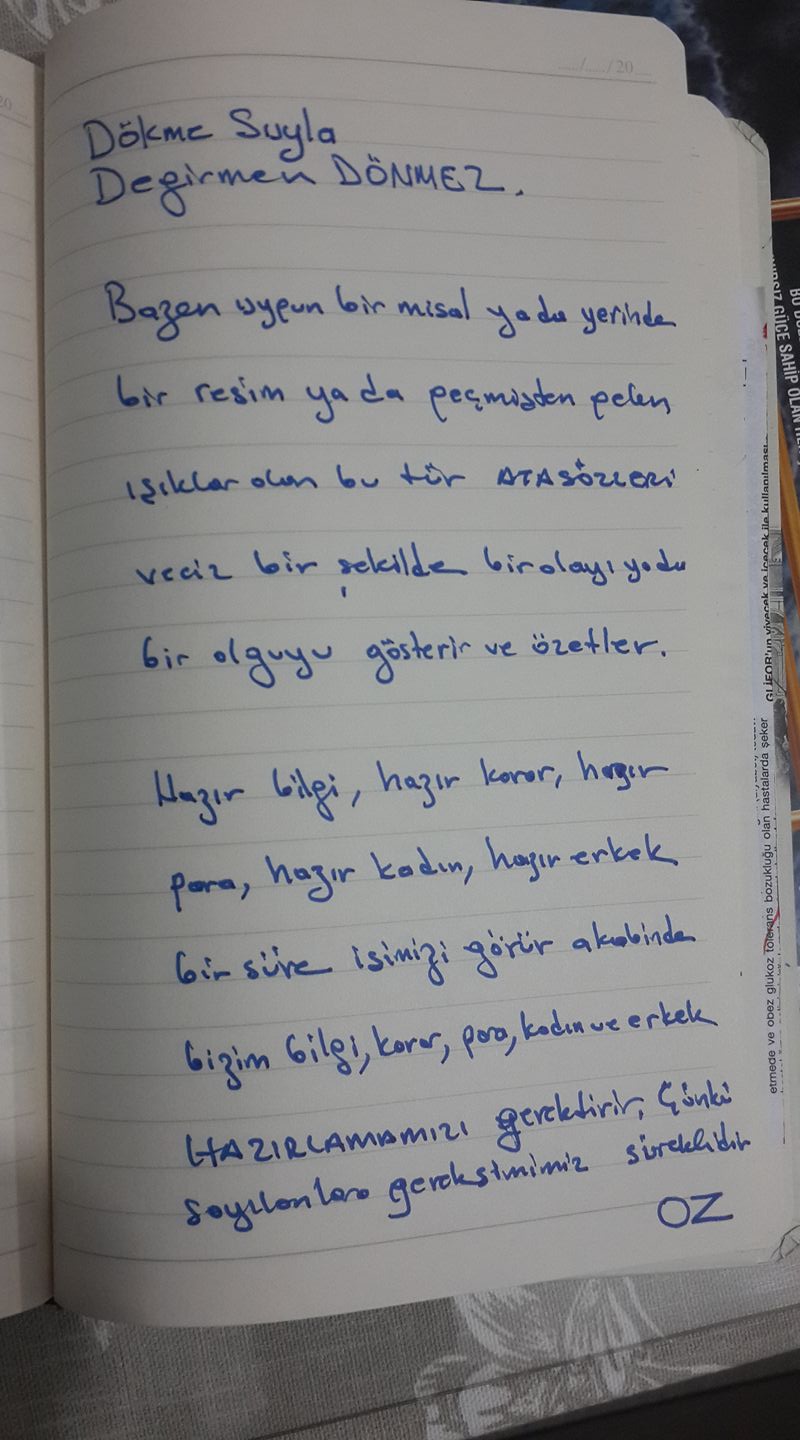 20
..../..../20....
Dökme Suyla
Degirmen DÖNMEZ.
Bazen uygun bir misal yada yerinde
bir resim ya da geçmişten gelen
ışıklar olan bu tür ATASÖZLERİ
veciz bir şekilde bir olayı yada
bir olguyu gösterir ve özetler.
Hazır bilgi, hazır karar, hazır
para, hazır kadın, hazır erkek
bir süre isimizi görür akabinde
bizim bilgi, karar, para, kadın ve erkek
HAZIRLAMAMIZI gerektirir, Çünkü
sayılanlara gereksinimimiz süreklidir
OZ
GÜCE SAHİP OLAN
GLİFOR'un yiyecek ve içecek ile kullanılması
etmede ve obez glukoz tolerans bozukluğu olan hastalarda şeker